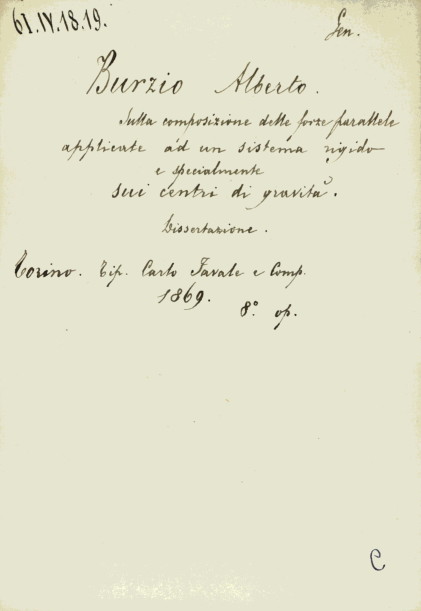 61.IV.18.19.
Gen.
Burzio Alberto.
Sulla composizione delle forze parallele
applicate ad un sistema rigido
e specialmente
sui centri di gravità.
Dissertazione.
Torino. Tip. Carlo Favale e Comp.
1869. 8.° op.
C